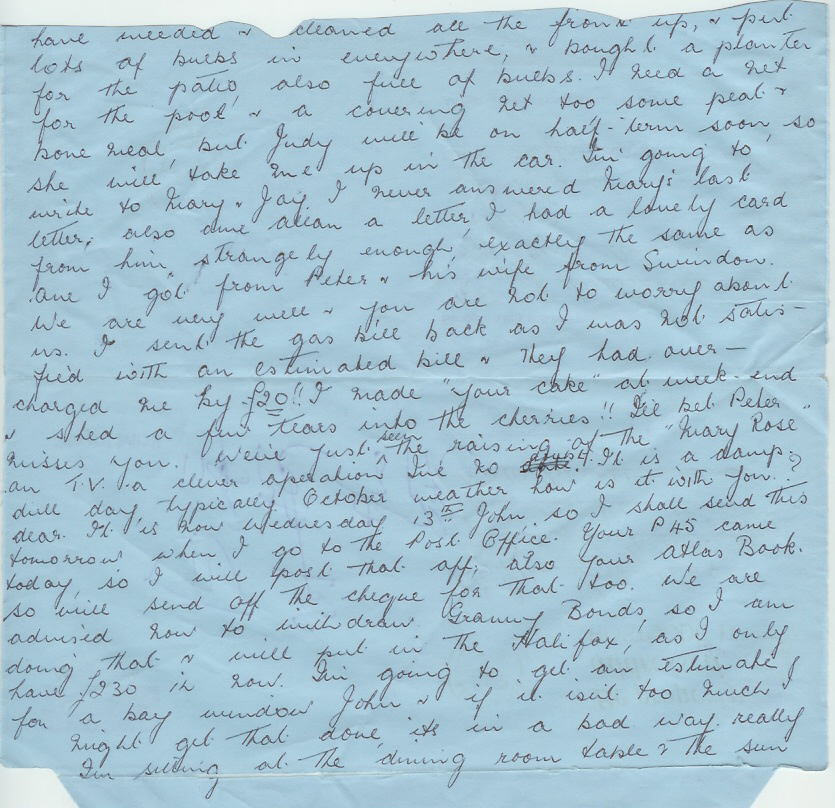 have weeded & cleaned all the front up, & put
lots of bulbs in everywhere, & bought a planter
for the patio, also full of bulbs. I need a net
for the pool & a covering net too some peat &
bone meal, but Judy will be on half-term soon, so
she will take me up in the car. I'm going to
write to Mary & Jay, I never answered Mary's last
letter, also owe a letter, I had a lovely card
from him, strangely enough, exactly the same as
one I got from Peter & his wife from Swindon.
We are very well & you are not to worry about
us. I sent the gas bill back as I was not satis-
fied with an estimated bill & they had over-
charged me by £20!! I made "your cake" at week-end
& shed a few tears into the cherries!! I'll bet Peter
misses you. We've just seen the raising of the "Mary Rose"
on T.V. a clever operation It is a damp
dull day typically October weather how is it with you?
dear. It is now Wednesday 13th John, so I shall send this
tomorrow when I go to the Post Office. Your P45 came
today, so I will post that off, also your Atlas Book.
so will send off the cheque for that too. We are
advised now to withdraw Granny Bonds so I am
doing that & will put in the Halifax, as I only
have £230 in now. I'm going to get an estimate
for a bay window John & if it isn't too much I
might get that done, its in a bad way really
I'm sitting at the dining room table & the sun